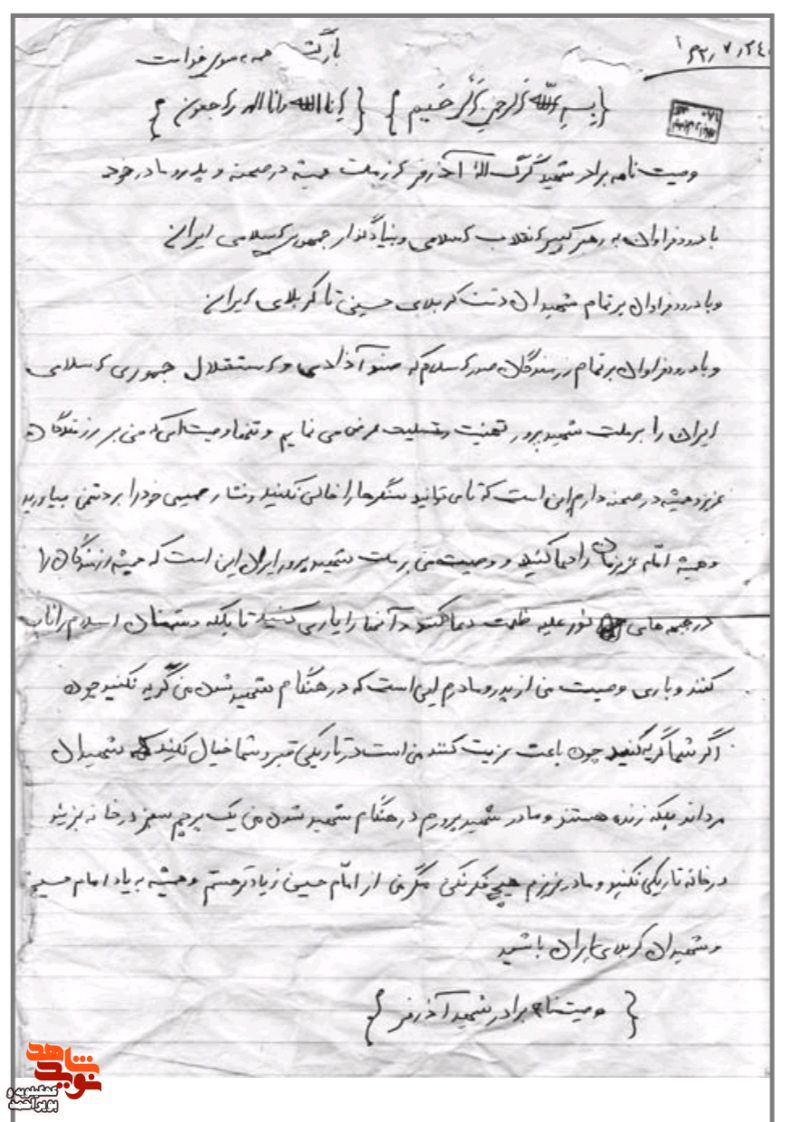 ۶۲٫۷٫۲۴
بازگشت همه بسوی خداست
{بسم الله الرحمن الرحیم} {انا لله و انا الیه راجعون}
وصیت نامه برادر شهید گرگ الله آذرفر از ملت همیشه در صحنه و پدر و مادر خود
با درود فراوان به رهبر کبیر انقلاب اسلامی و بنیادگذار جمهوری اسلامی ایرانی
و با درود فراوان بر تمام شهیدان دشت کربلای حسینی تا کربلای ایرانی
و با درود فراوان بر تمام رزمندگان صدر اسلام که آزادی و استقلال جمهوری اسلامی
ایران را بر ملت شهید پرور تهنیت و تسلیت عرض می نمایم و تنها وصیت که من بر رزمندگان
عزیز و همیشه در صحنه دارم این است که تا می توانید سنگرها را خالی نکنید و خود را بر دشمن بیاورید
و همیشه امام عزیزمان را دعا کنید و وصیت من بر ملت شهید پرور ایران این است که همیشه رزمندگان را
در جبهه های نور علیه ظلمت دعا کنید و آنها را یاری کنید تا بلکه دشمنان اسلام را
کنند و باری وصیت من از پدر و مادرم این است که در هنگام شهید شدن من گریه نکنید چون
اگر شما گریه کنید چون باعث کننده من است در تاریکی قبر و شما خیال نکنید که شهیدان
مرداند بلکه زنده هستند و مادر شهید پرورم در هنگام شهید شدن من یک پرچم سبز در خانه بزنید
در خانه تاریکی نکنید و مادر عزیزم هیچ فکر نکن مگر من از امام حسین زیادتر هستم و همیشه به یاد امام حسین
و شهیدان کربلای ایران باشید
{ وصیتنامه برادر شهید آذرفر }
نوید شاهد
کهگیلویه و
بویراحمد